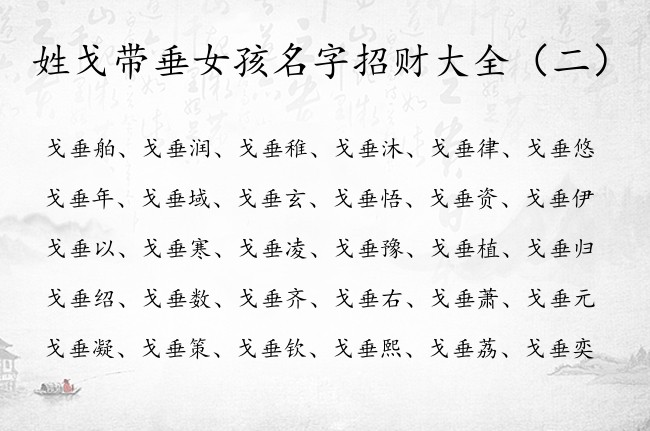 姓戈带垂女孩名字招财大全（二）
戈垂舶、戈垂润、戈垂稚、戈垂沐、戈垂律、戈垂悠
戈垂年、戈垂域、戈垂玄、戈垂悟、戈垂资、戈垂伊
戈垂以、戈垂寒、戈垂凌、戈垂豫、戈垂植、戈垂归
戈垂绍、戈垂数、戈垂齐、戈垂右、戈垂萧、戈垂元
戈垂凝、戈垂策、戈垂钦、戈垂熙、戈垂荔、戈垂奕